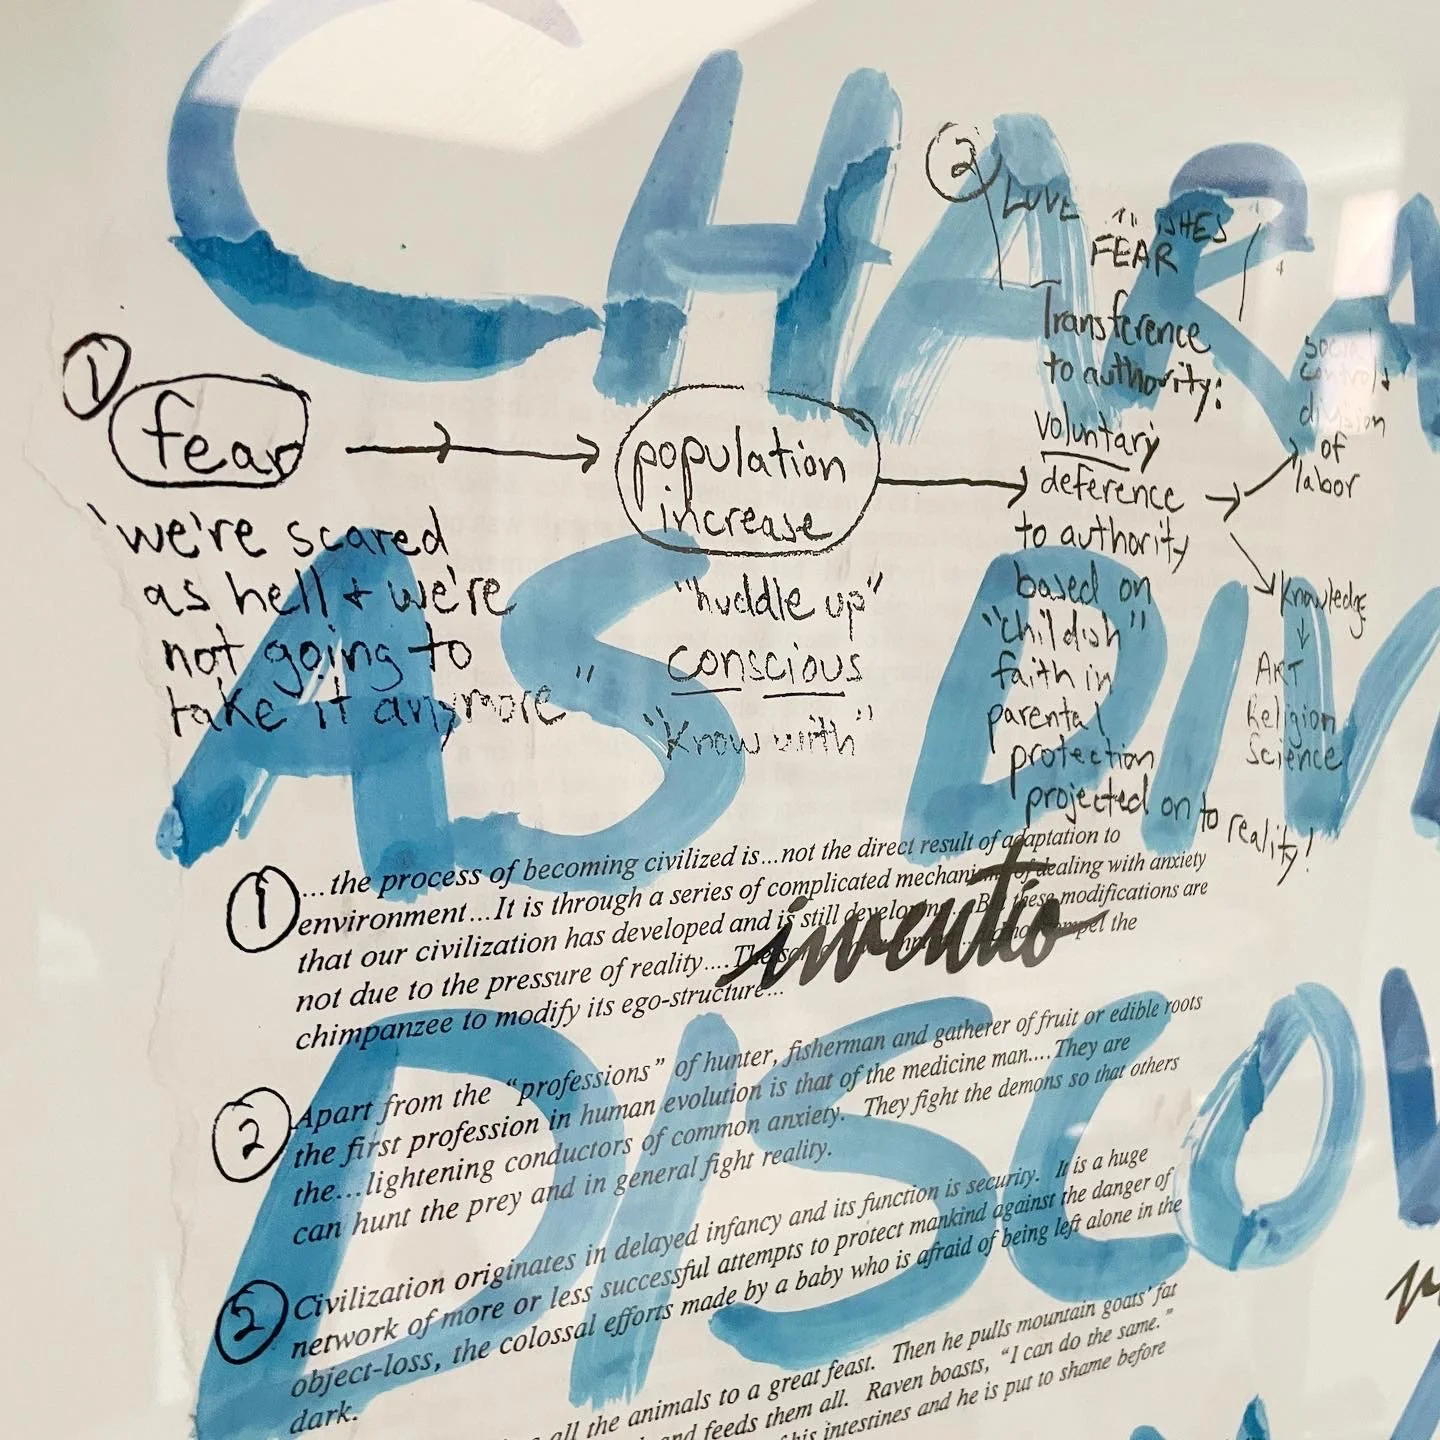 CHARA
①
fear
"we're scared
as hell + we're
not going to
take it anymore"
population
increase
"huddle up"
conscious
"know with"
②
LOVE
ISHES
FEAR
Transference
to authority:
voluntary
deference
to authority
based on
"childish"
faith in
parental
protection
projected on to reality!
social
control +
division
of
labor
knowledge
ART
Religion
Science
AS DIV
①
…the process of becoming civilized is…not the direct result of adaptation to
environment…It is through a series of complicated mechanisms of dealing with anxiety
that our civilization has developed and is still developing… But these modifications are
not due to the pressure of reality….The compel the
chimpanzee to modify its ego-structure…
inventio
②
Apart from the "professions" of hunter, fisherman and gatherer of fruit or edible roots
the first profession in human evolution is that of the medicine man….They are
the…lightening conductors of common anxiety. They fight the demons so that others
can hunt the prey and in general fight reality.
Civilization originates in delayed infancy and its function is security. It is a huge
network of more or less successful attempts to protect mankind against the danger of
object-loss, the colossal efforts made by a baby who is afraid of being left alone in the
dark.
DISCO
all the animals to a great feast. Then he pulls mountain goats' fat
and feeds them all. Raven boasts, "I can do the same."
his intestines and he is put to shame before